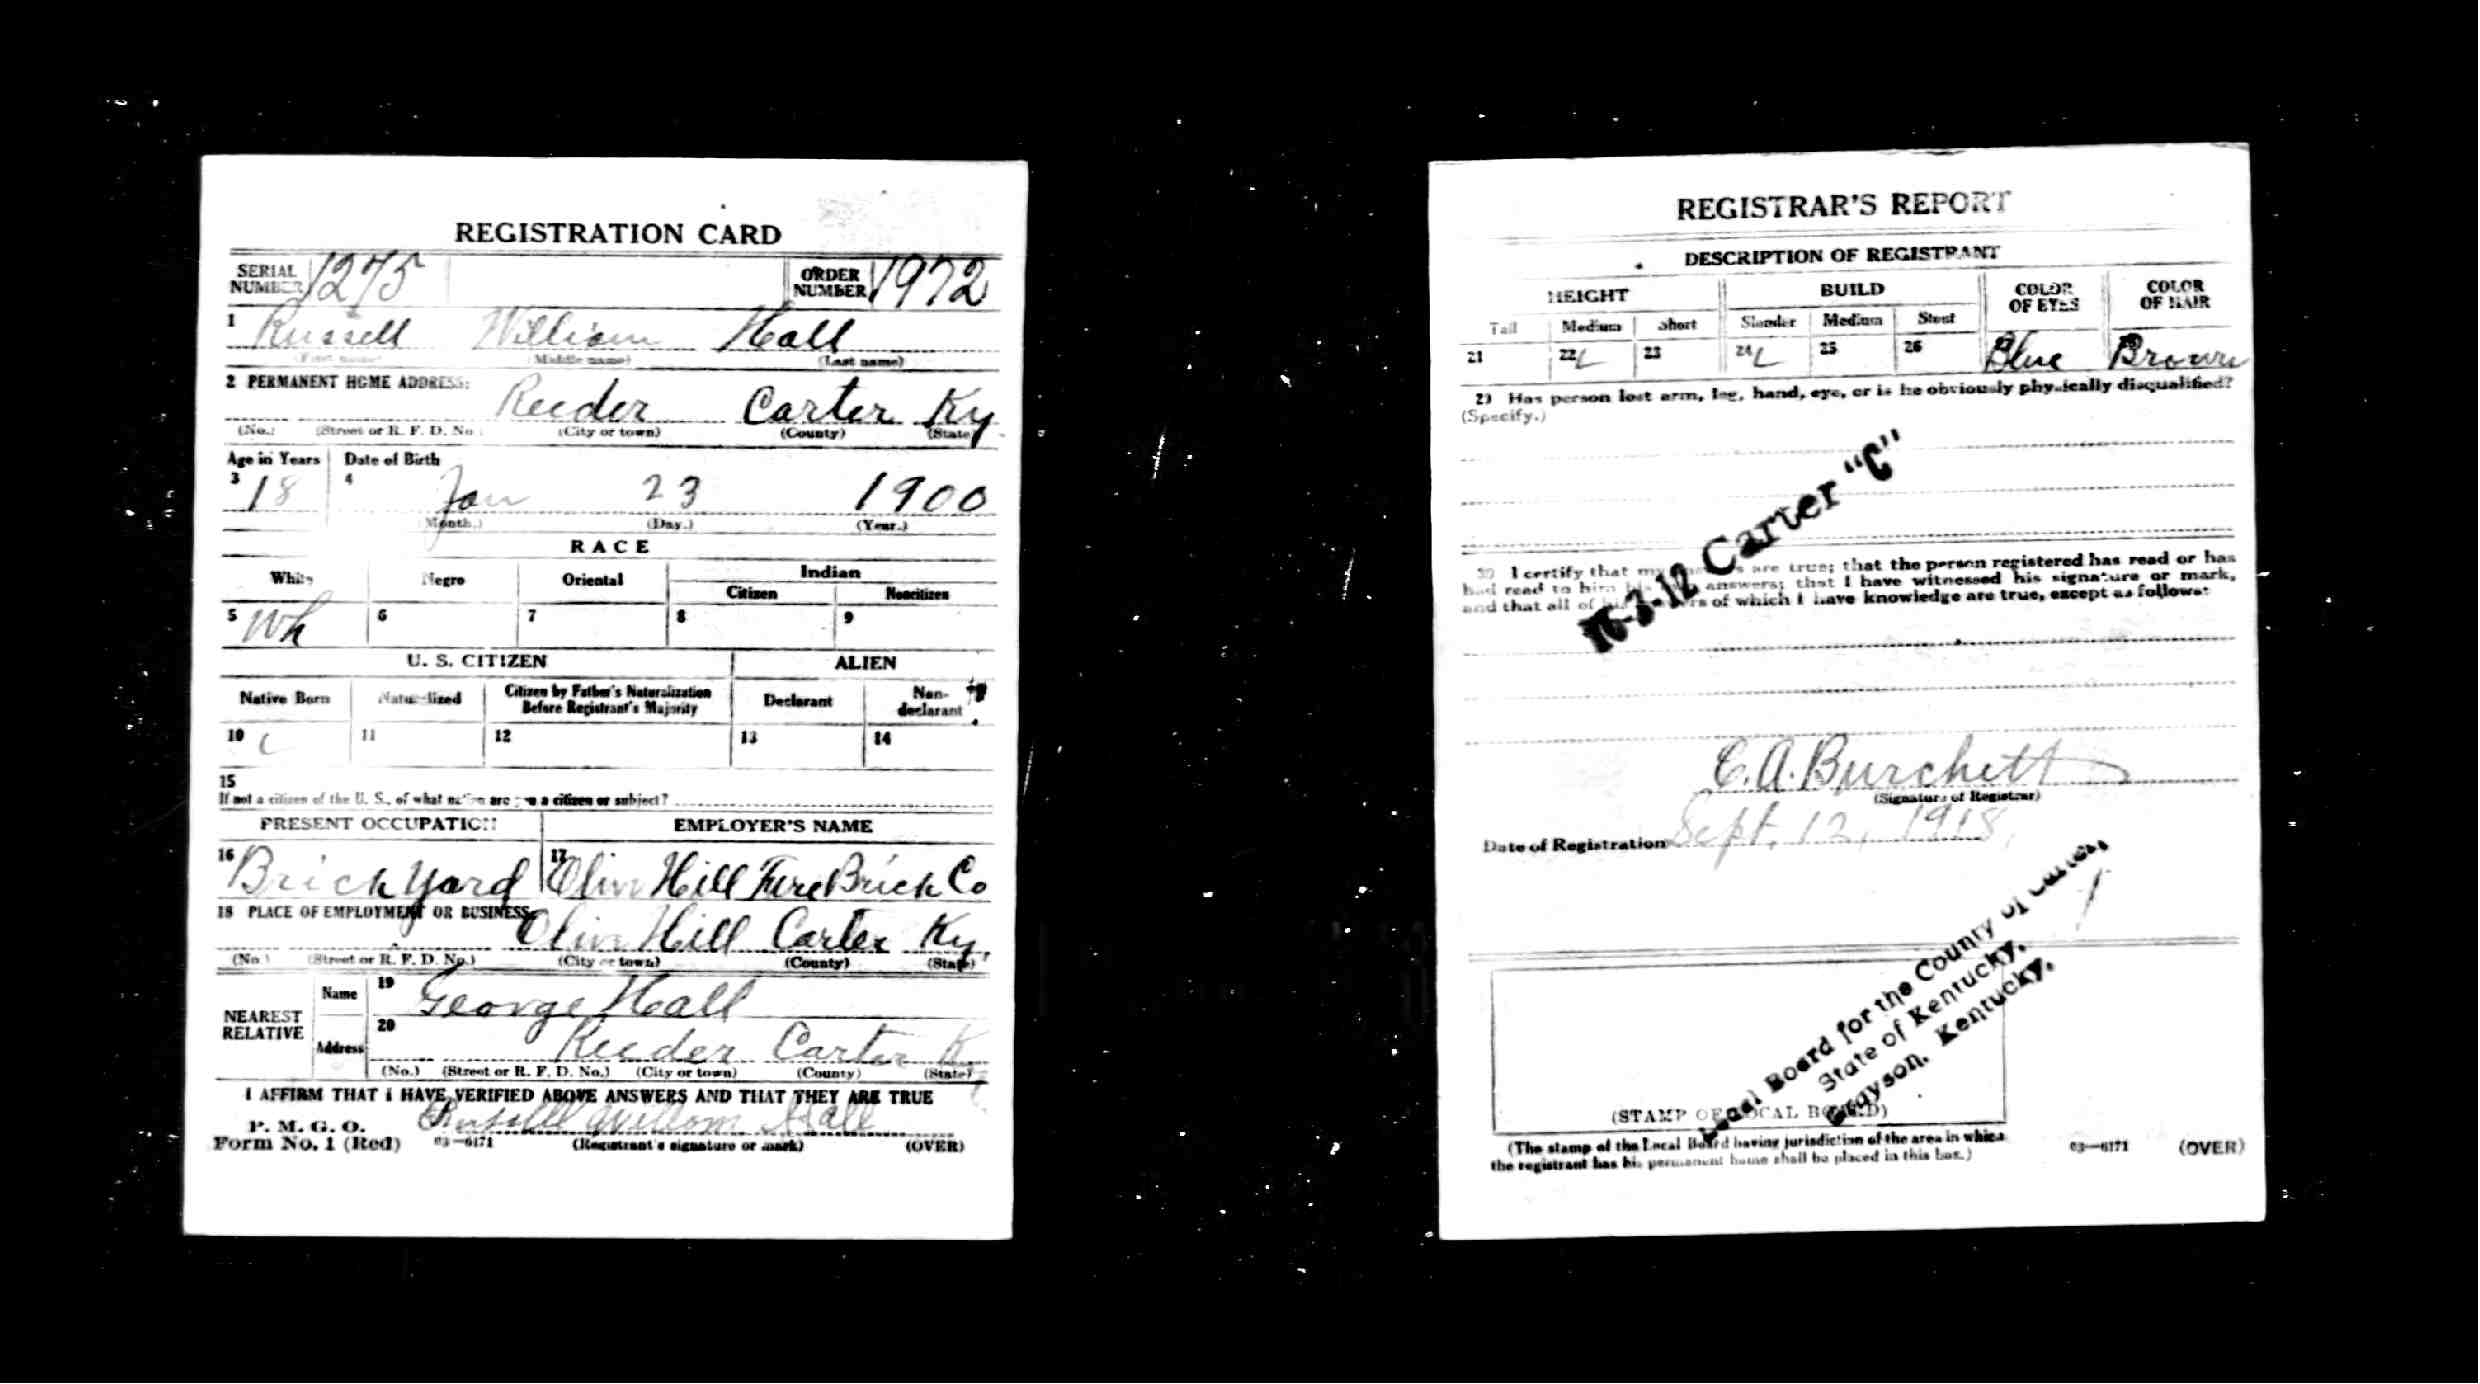 REGISTRATION CARD
SERIAL NUMBER 1275 ORDER NUMBER 1972
1 Russell William Hall
(First name) (Middle name) (Last name)
2 PERMANENT HOME ADDRESS:
Reeder Carter Ky
(No.) (Street or R. F. D. No.) (City or town) (County) (State)
Age in Years Date of Birth
3 18 4 Jan 23 1900
(Month.) (Day.) (Year.)
RACE
White Negro Oriental Indian
Citizen Noncitizen
5 Wh 6 7 8 9
U. S. CITIZEN ALIEN
Native Born Naturalized Citizen by Father's Naturalization Before Registrant's Majority Declarant Non-declarant
10 11 12 13 14
15
If not a citizen of the U. S., of what nation are you a citizen or subject?
PRESENT OCCUPATION EMPLOYER'S NAME
16 Brick Yard 17 Oliv Hill Fire Brick Co
18 PLACE OF EMPLOYMENT OR BUSINESS
Oliv Hill Carter Ky,
(No.) (Street or R. F. D. No.) (City or town) (County) (State)
NEAREST RELATIVE
Name 19 George Hall
Address 20 Reeder Carter K
(No.) (Street or R. F. D. No.) (City or town) (County) (State)
I AFFIRM THAT I HAVE VERIFIED ABOVE ANSWERS AND THAT THEY ARE TRUE
P. M. G. O.
Form No. 1 (Red) 03—6171 Russell William Hall
(Registrant's signature or mark) (OVER)
REGISTRAR'S REPORT
DESCRIPTION OF REGISTRANT
HEIGHT BUILD COLOR OF EYES COLOR OF HAIR
Tall Medium Short Slender Medium Stout
21 22 23 24 25 26 Blue Brown
29 Has person lost arm, leg, hand, eye, or is he obviously physically disqualified?
(Specify.)
16-3-12 Carter "C"
30 I certify that my are true; that the person registered has read or has
had read to him answers; that I have witnessed his signature or mark,
and that all of of which I have knowledge are true, except as follows:
C. A. Burchett
(Signature of Registrar)
Date of Registration Sept. 12, 1918,
Local Board for the County of Carter,
State of Kentucky,
Grayson, Kentucky.
(STAMP OF LOCAL BOARD)
(The stamp of the Local Board having jurisdiction of the area in which
the registrant has his permanent home shall be placed in this box.)
03—6171 (OVER)